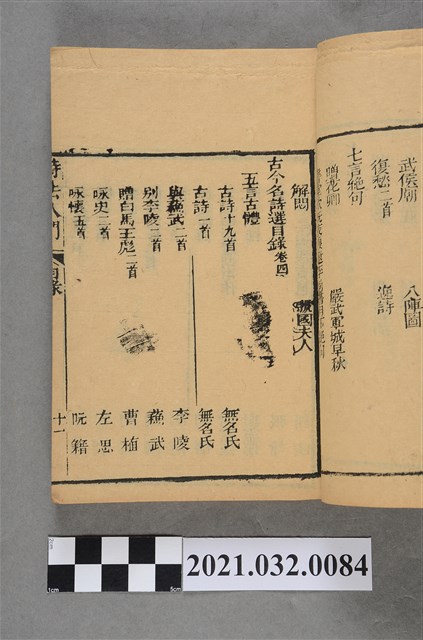 武侯廟
八陣圖
復愁二首
遊詩
七言絕句
贈花卿
嚴武軍城早秋
解悶
虢國夫人
古今名詩選目錄卷四
五言古體
古詩十九首 無名氏
古詩一首 無名氏
與蘇武三首 李陵
別李陵二首 蘇武
贈白馬王彪二首 曹植
咏史三首 左思
咏懷五首 阮籍
詩法入門 目錄 十一
1cm
5cm
2021.032.0084